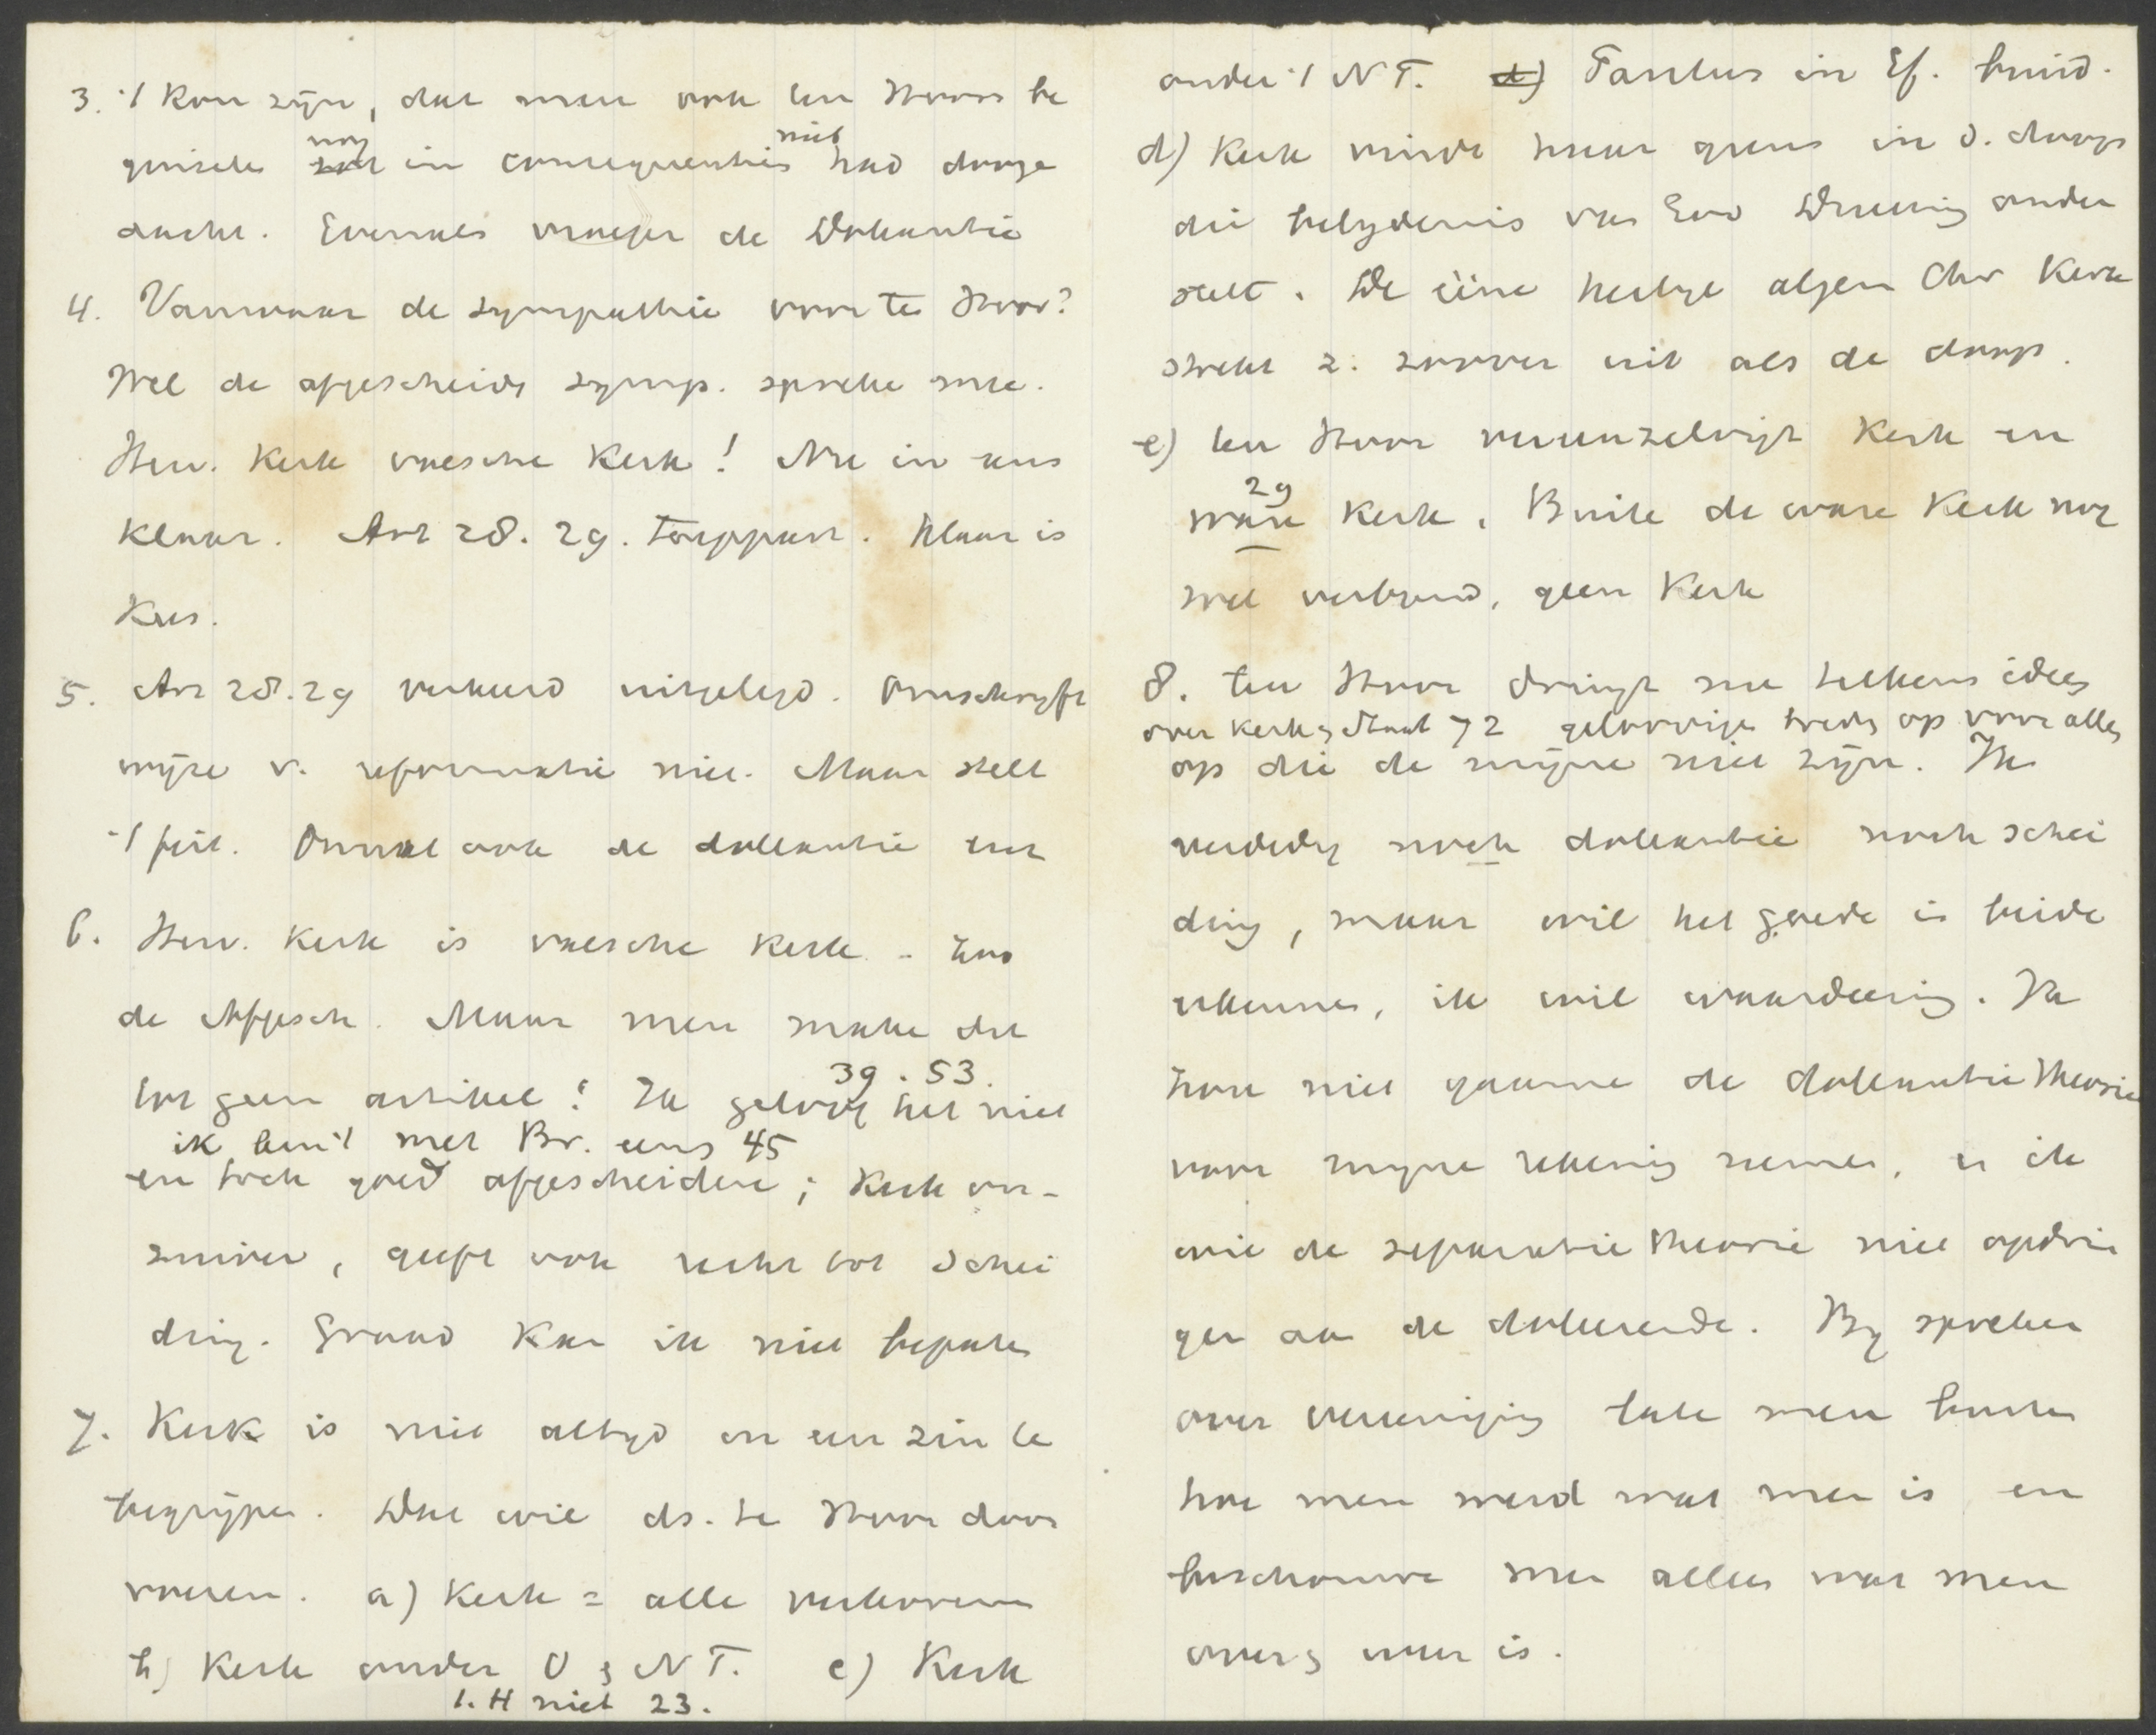 3. 't kon zijn, dat men ook ten Hoors be
ginsele nog in consequenties niet had dooge
dacht. Evenals vroeger de Doleantie
4. Vanwaar de sympathie voor te Hoor?
Wel de afgescheidn symp. spreke mee.
Herv. Kerk valsche Kerk! Nu in eens
klaar. Art 28. 29. toegepast. Klaar is
Kees.
5. Art 28.29 verkeerd uitgelegd. Omschrijft
wijze v. reformatie niet. Maar stelt
't feit. Omvat ook de doleantie
6. Herv. Kerk is valsche Kerk.
de Afgesch. Maar men make dit
tot geen artikel! Ik geloof het niet
39. 53.
ik ben 't met Br. eens 45
en toch goed afgescheidene; Kerk ver-
zuiver, geeft ook recht tot schei
ding. Graad kan ik niet bepale
7. Kerk is niet altijd in een zin te
begrijpen. Dat wil ds. te Hoor door
voeren. a) Kerk = alle verkorenen
b) Kerk onder O & N T. c) Kerk
t. H niet 23.
onder 't N T. d) Paulus in Ef. bruid.
d) Kerk vindt haar grens in d. doop
die belijdenis van Evd Drieenig onder
stelt. De eene heilige algem Chr Kerk
strekt z. zoover uit als de doop.
e) ten Hoor vereenzelvigt Kerk en
29
ware Kerk. Buite de ware Kerk nog
wel verbond, geen Kerk
8. ten Hoor dringt me telkens idees
over Kerk & Staat 72 geloovige treds op voor alles
op die de mijne niet zijn. Ik
verdedig noch doleantie noch schei
ding, maar wil het goede in beide
erkennen, ik wil waardeering. Ik
zou niet gaarne de doleantie theorie
voor mijne rekening nemen, en ik
wil de separatie theorie niet opdrin
gen aan de doleerende. By spreken
over vereeniging late men buiten
hoe men werd wat men is en
beschouwe men alleen wat men
overg weer is.